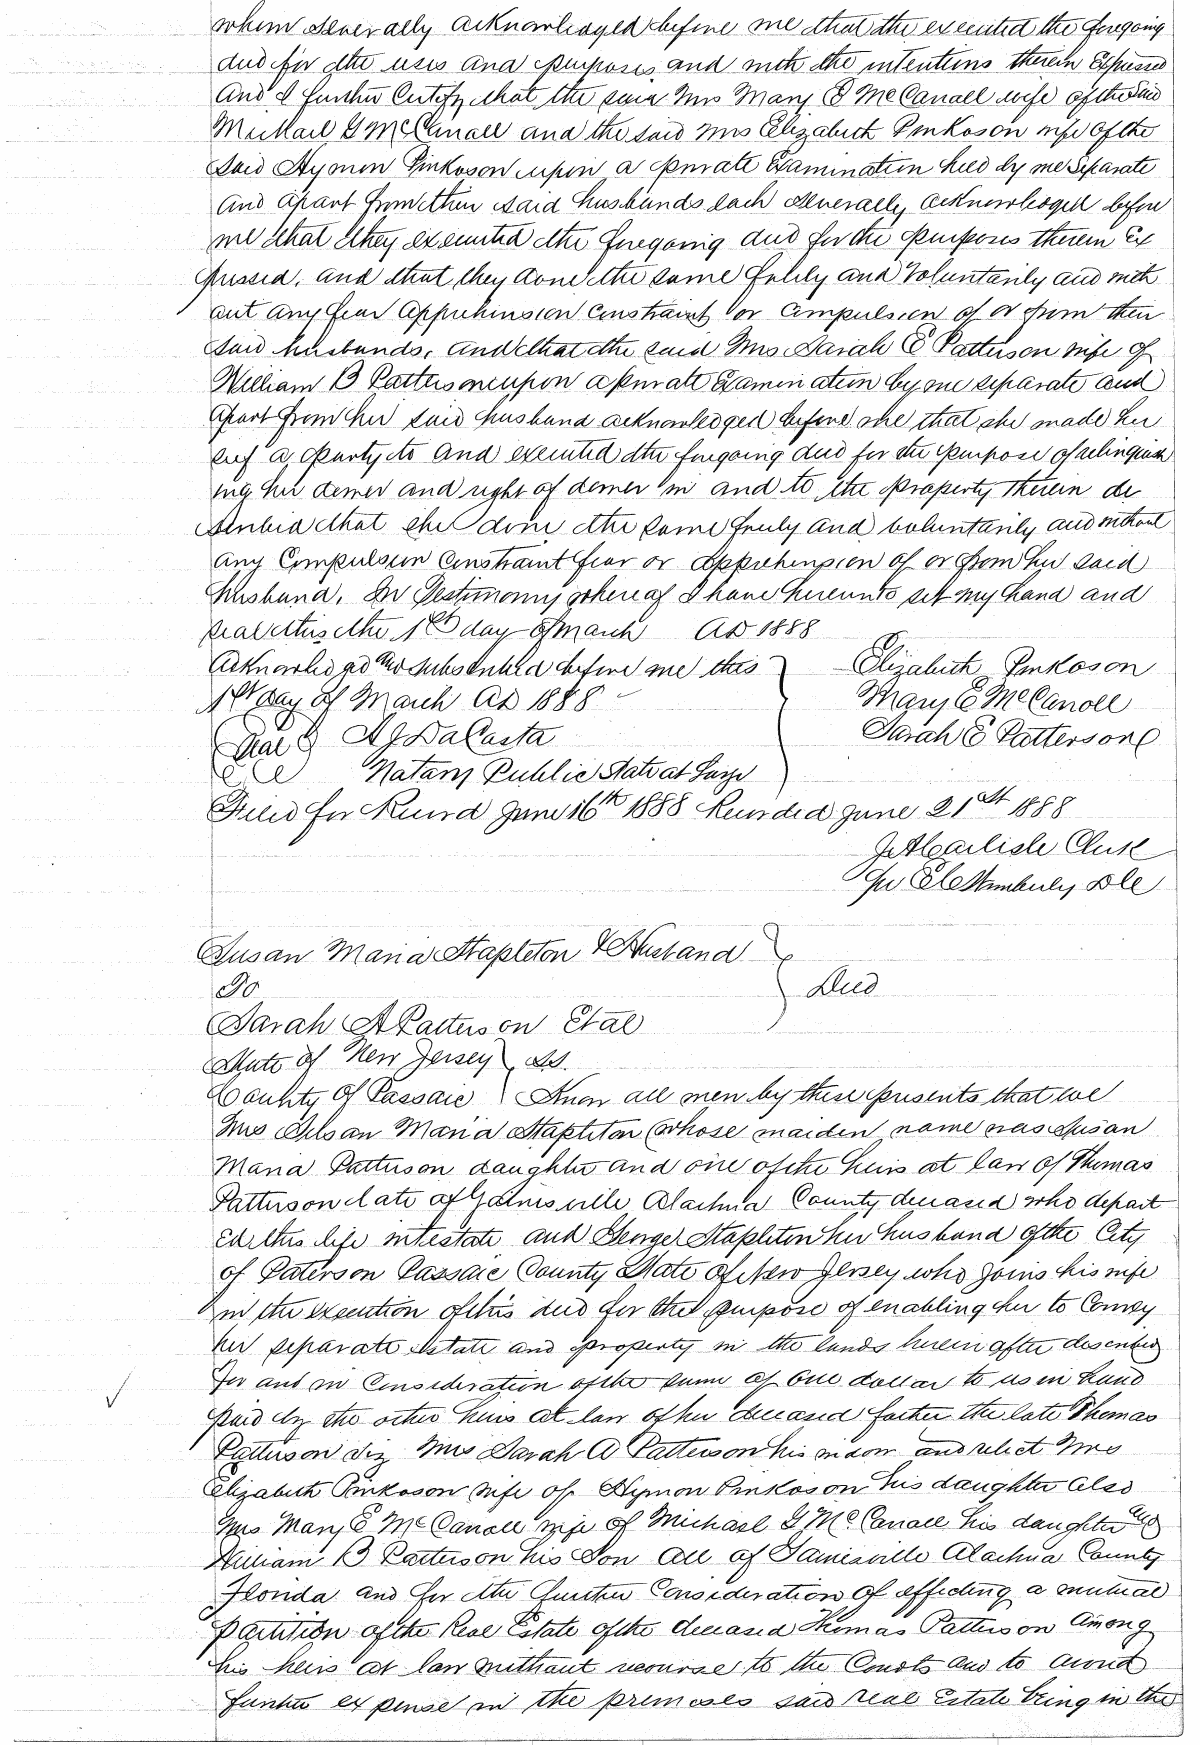 whom severally acknowledged before me that the executed the foregoing
deed for the uses and purposes and with the intentions therein Expressed
And I further Certify that the said Mrs Mary E McCanall wife of the said
Mickail G McCanall and the said Mrs Elizabeth Pinkoson wife of the
Said Hymon Pinkoson upon a private Examination had by me Separate
And apart from their said husbands each severally acknowledged before
me that they executed the foregoing deed for the purposes therein Ex
pressed, and that they done the same freely and Voluntarily and with
out any fear Apprehension Constraint or Compulsion of or from their
said husbands, and that the said Mrs Sarah E Patterson wife of
William B Patterson upon a private Examination by me separate and
Apart from her said husband acknowledged before she that she made her
self a party to and executed the foregoing deed for the purpose of relinquish
ing her dower and right of dower in and to the property therein de
scribed that she done the same freely and voluntarily and without
any Compulsion Constraint fear or Apprehension of or from her said
husband, In Testimony whereof I have hereunto set my hand and
seal this the 1st day of March AD 1888
Acknowledged and subscribed before me this } Elizabeth Pinkoson
1st day of March AD 1888 Mary E McCanoll
(Seal) A J DaCosta Sarah E Patterson
Notary Public State at Large
Filed for Record June 16th 1888 Recorded June 21st 1888
J A Carlisle Clerk
per Wimberly D C
Susan Maria Stapleton & Husband
To } Deed
Sarah A Patterson Et al
State of New Jersey } S.S.
County of Passaic } Know all men by these presents that we
Mrs Susan Maria Stapleton (whose maiden name was Susan
Maria Patterson daughter and one of the heirs at law of Thomas
Patterson late of Gainesville Alachua County deceased who depart
ed this life intestate and George Stapleton her husband of the City
of Paterson Passaic County State of New Jersey who joins his wife
in the execution of this deed for the purpose of enabling her to Convey
her separate estate and property in the lands herein after described
for and in Consideration of the sum of One dollar to us in Hand
paid by the other heirs at law of her deceased father the late Thomas
Patterson viz Mrs Sarah A Patterson his widow and relict Mrs
Elizabeth Pinkoson wife of Hymon Pinkoson his daughter Also
Mrs Mary E McCanall wife of Michael G McCanall his daughter and
William B Patterson his Son all of Gainesville Alachua County
Florida and for the further Consideration of effecting a mutual
partition of the Real Estate of the deceased Thomas Patterson Among
his heirs at law without recourse to the Courts and to avoid
further expense in the premises said real Estate being in the